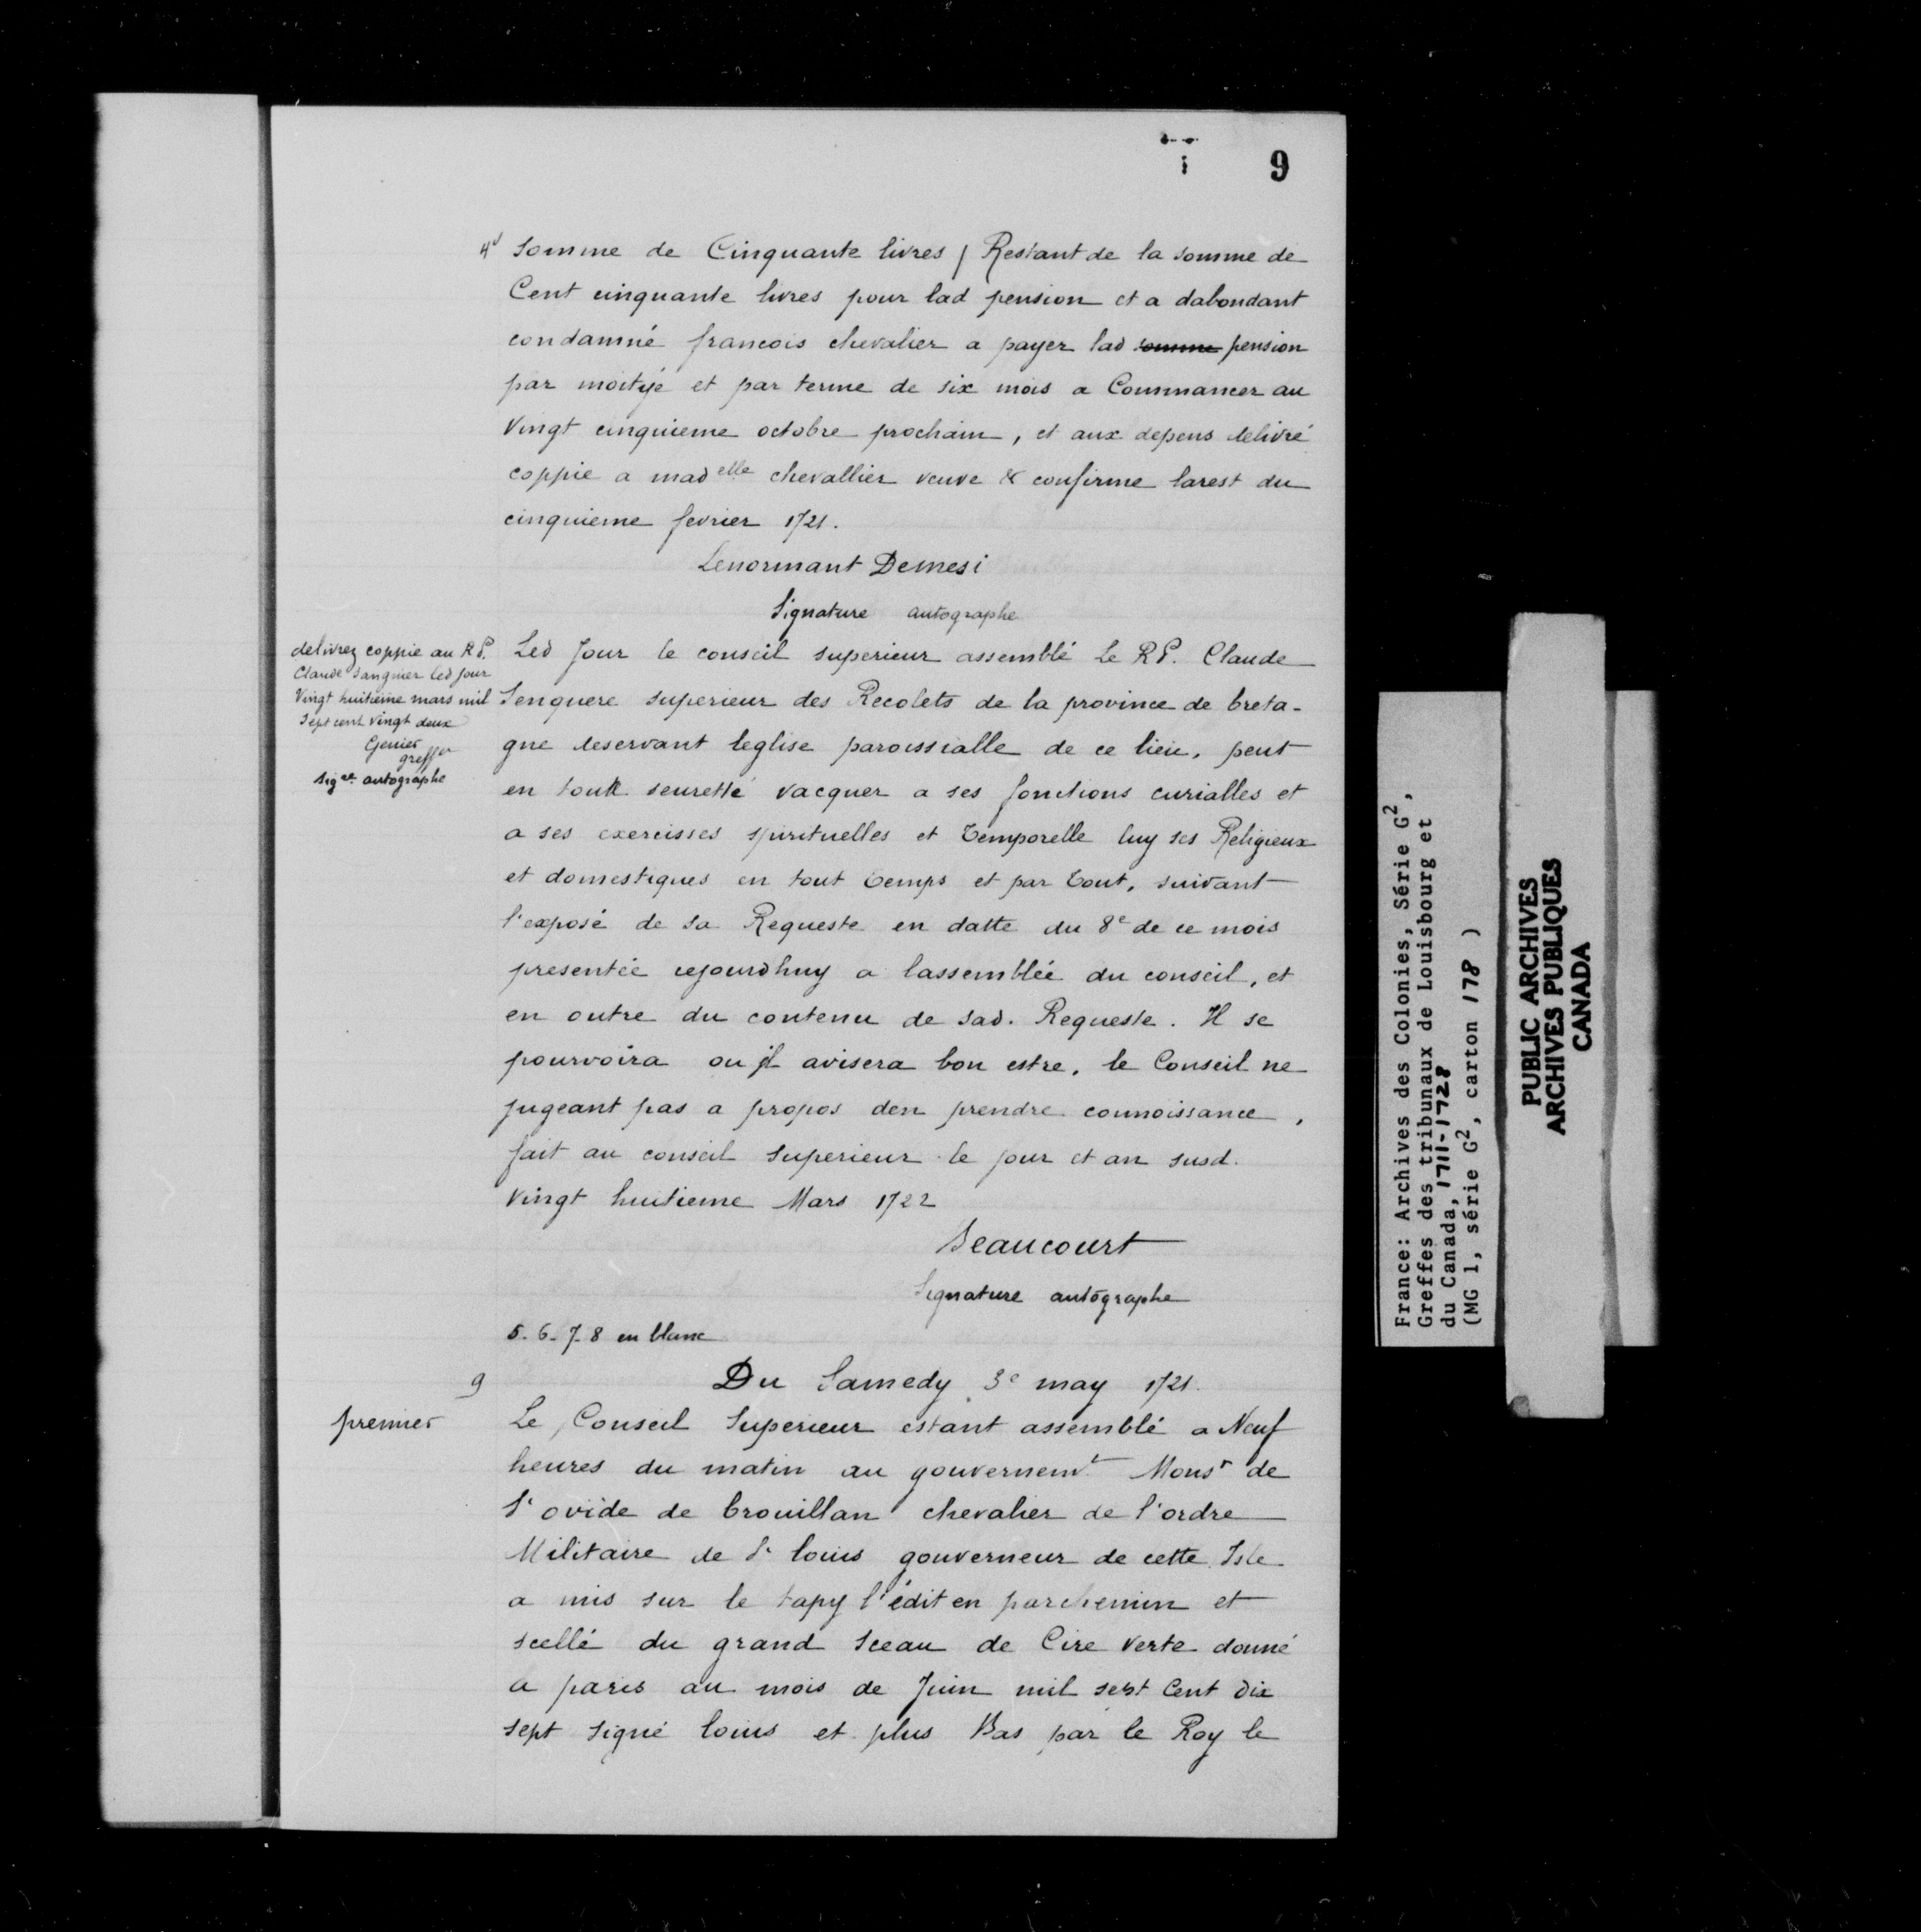 9
4v somme de Cinquante livres / Restant de la somme de
Cent cinquante livres pour lad pension et a dabondant
condamné francois chevalier a payer lad somme pension
par moityé et par terme de six mois a Commancer au
Vingt cinquieme octobre prochain, et aux depens delivré
coppie a madelle chevallier veuve & confirme larest du
cinquieme fevrier 1721.
Lenormant Demesi
Signature autographe
delivrez coppie au R P.
Claude Sanguier led jour
Vingt huitieme mars mil
Sept cent vingt deux
greffer
sigre autographe
Led Jour le conseil superieur assemblé Le R P. Claude
Senquere superieur des Recolets de la province de breta-
gne deservant leglise paroissialle de ce lieu, peut
en toutte seuretté vacquer a ses fonctions curialles et
a ses exercisses spirituelles et temporelle luy ses Religieux
et domestiques en tout temps et par tout, suivant
l'exposé de sa Requeste en datte du 8e de ce mois
presentée cejourdhuy a lassemblée du conseil, et
en outre du contenu de sad. Requeste. Il se
pourvoira ou il avisera bon estre, le Conseil ne
jugeant pas a propos den prendre connoissance,
fait au conseil superieur le jour et an susd.
Vingt huitieme Mars 1722
Beaucourt
Signature autographe
5. 6. 7. 8 en blanc
9
Du Samedy 3e may 1721.
premier
Le Conseil Superieur estant assemblé a Neuf
heures du matin au gouvernemt Monsr de
St ovide de brouillan chevalier de l'ordre
Militaire de St louis gouverneur de cette Isle
a mis sur le tapy l'édit en parchemin et
scellé du grand Sceau de Cire verte donné
a paris au mois de Juin mil sept Cent dix
sept signé louis et plus Bas par le Roy le
France: Archives des Colonies, Série G2,
Greffes des tribunaux de Louisbourg et
du Canada, 1711-1728
(MG 1, série G2, carton 178 )
PUBLIC ARCHIVES
ARCHIVES PUBLIQUES
CANADA